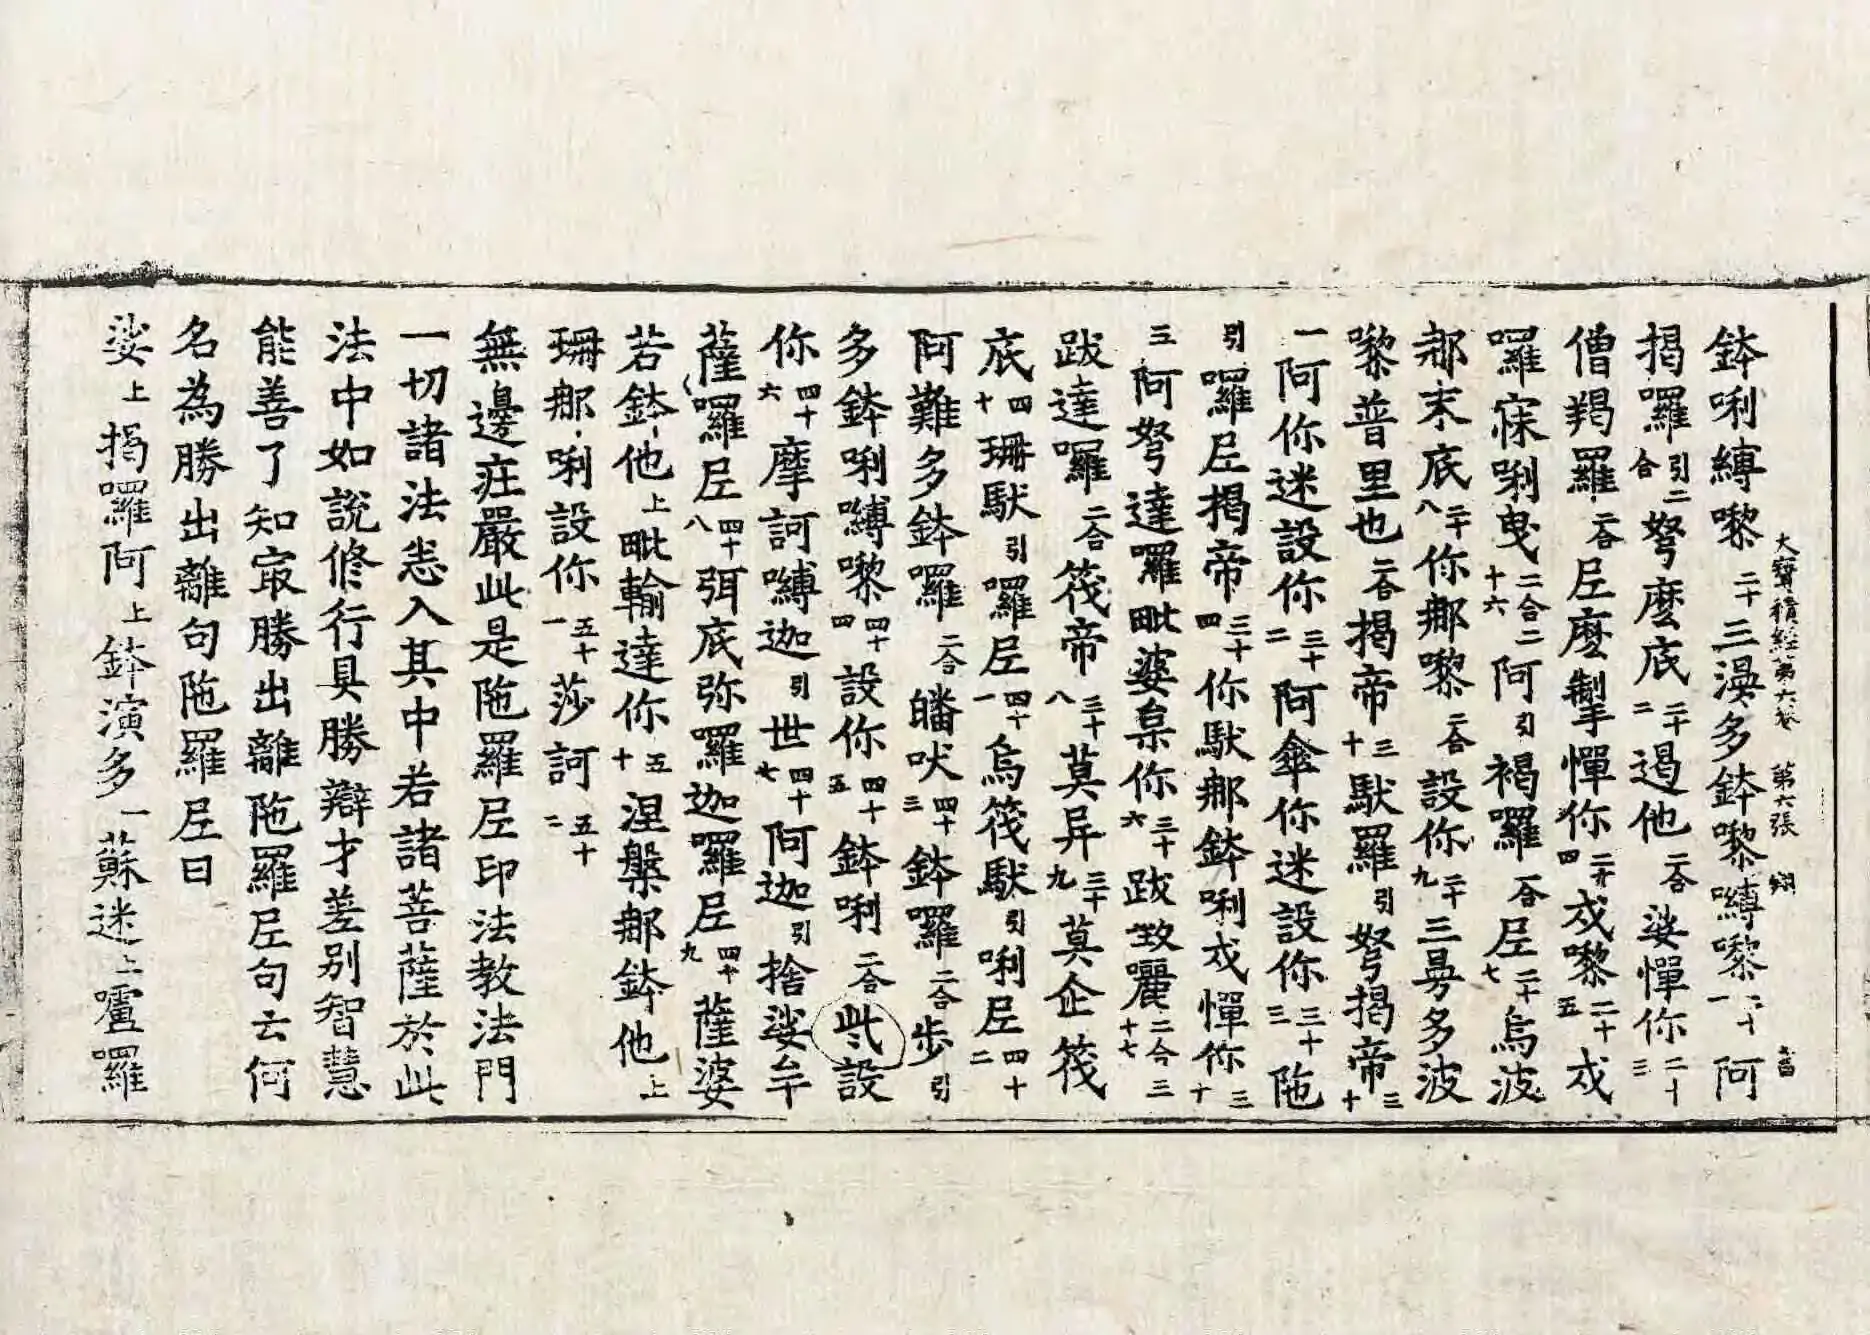 鉢唎縛嚟二十三漫多鉢嚟嚩嚟二十一阿
揭囉引二合弩麽底二十二遏他二合娑憚你二十三
僧羯羅二合𡰱麽掣憚你二十四戍嚟二十五戍
囉寐唎曳二合二十六阿引褐囉二合𡰱二十七烏波
那末底二十八你那嚟二合設你二十九三曼多波
嚟普里也二合揭帝三十馱羅引弩揭帝三十
一阿你迷設你三十二阿傘你迷設你三十三陁
引囉𡰱揭帝三十四你馱那鉢唎戍憚你三十
三阿弩達囉毗婆枲你三十六跋致囉二合三十七
跋達囉二合筏帝三十八莫異三十九莫企筏
底四十珊馱引囉𡰱四十一烏筏馱引唎𡰱四十二
阿難多鉢囉二合皤吠四十三鉢囉二合步引
多鉢唎嚩嚟四十四設你四十五鉢唎二合此設
你四十六摩訶嚩迦引世四十七阿迦引捨娑牟
薩囉𡰱四十八弭底弥囉迦囉𡰱四十九薩婆
若鉢他上毗輸達你五十涅槃那鉢他上
珊那唎設你五十一莎訶五十二
無邊莊嚴此是陁羅𡰱印法教法門
一切諸法悉入其中若諸菩薩於此
法中如說修行具勝辯才差別智慧
能善了知㝡勝出離陁羅𡰱句云何
名為勝出離句陁羅𡰱曰
娑上揭囉阿上鉢演多一蘇迷上嚧囉
大寶積經第六卷 第六張